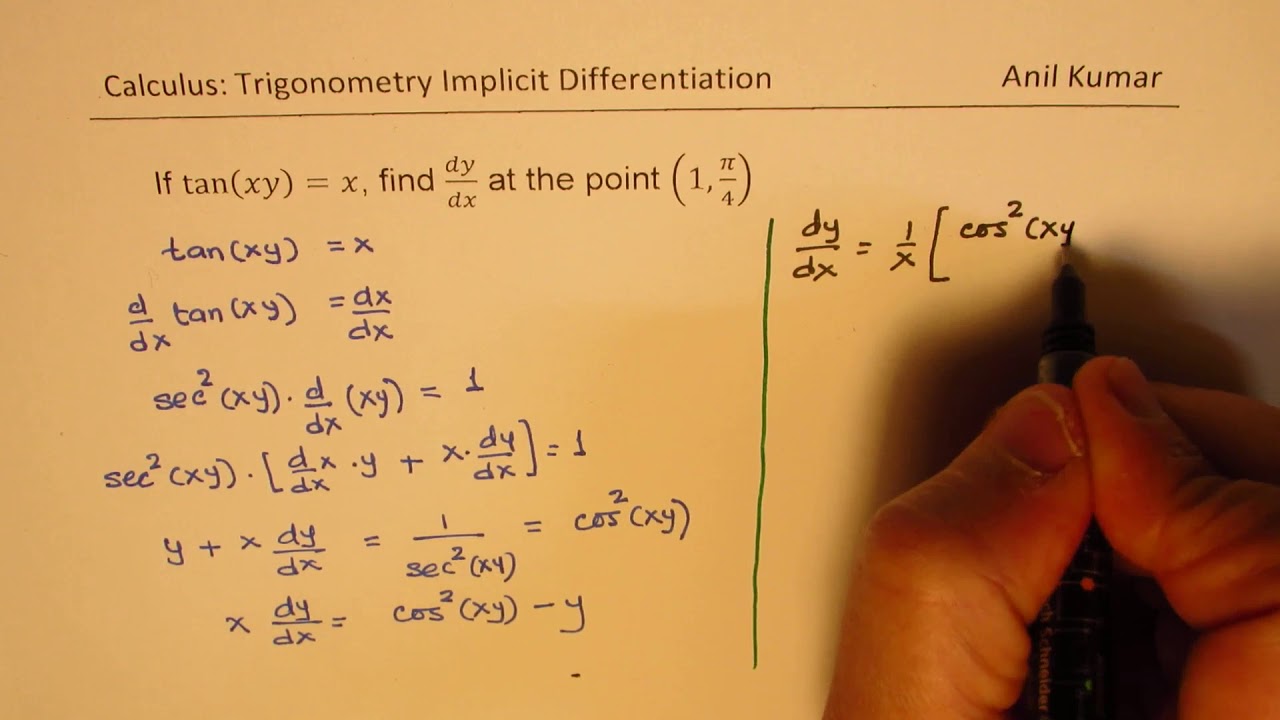 Calculus: Trigonometry Implicit Differentiation Anil Kumar
If tan(xy) = x, find dy/dx at the point (1, π/4)
tan(xy) = x
d/dx tan(xy) = dx/dx
sec²(xy) · d/dx (xy) = 1
sec²(xy) · [d/dx x · y + x · dy/dx] = 1
y + x dy/dx = 1/sec²(xy) = cos²(xy)
x dy/dx = cos²(xy) − y
dy/dx = 1/x [cos²(xy
Schneider